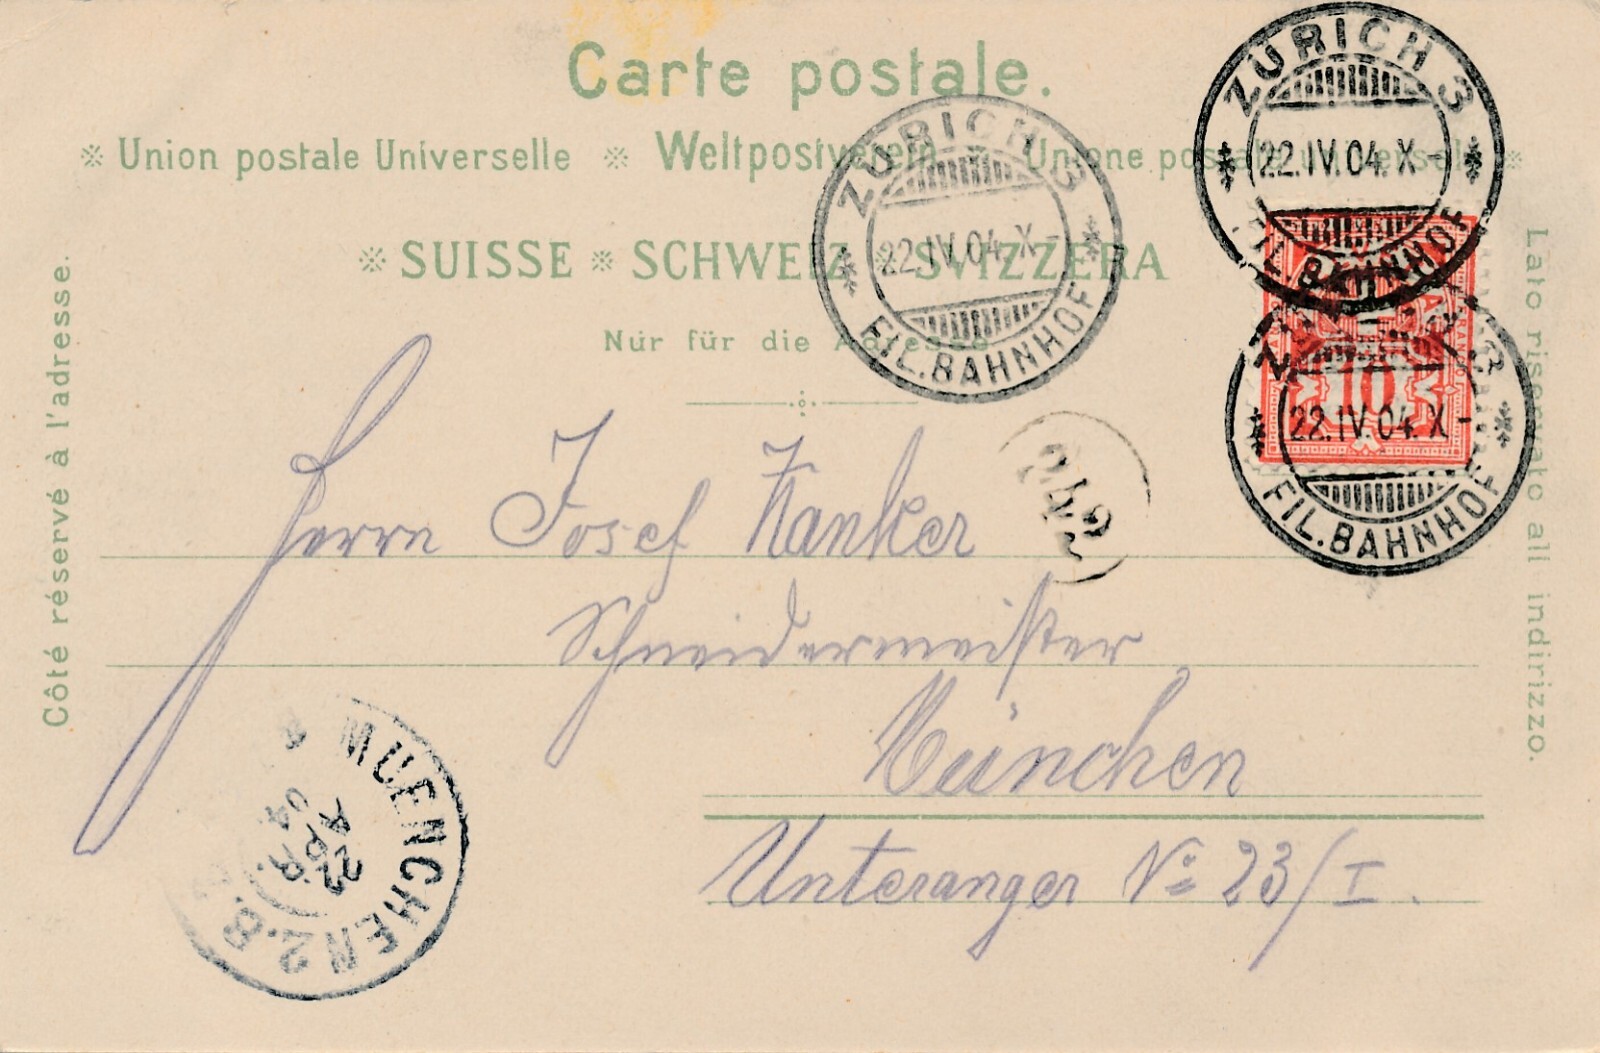 Carte postale.
※ Union postale Universelle ※ Weltpostverein ※ Unione postale universale ※
※ SUISSE ※ SCHWEIZ ※ SVIZZERA
Nur für die Adresse
Côté réservé à l'adresse.
Lato riservato all indirizzo.
ZÜRICH 3
22.IV.04.X-
FIL. BAHNHOF
ZÜRICH 3
22.IV.04.X-
FIL. BAHNHOF
10
22.IV.04.X-
FIL. BAHNHOF
Herrn Josef Kanker
Schneidermeister
München
Unteranger No 23/I.
MUENCHEN 2.B.
22
APR.
04